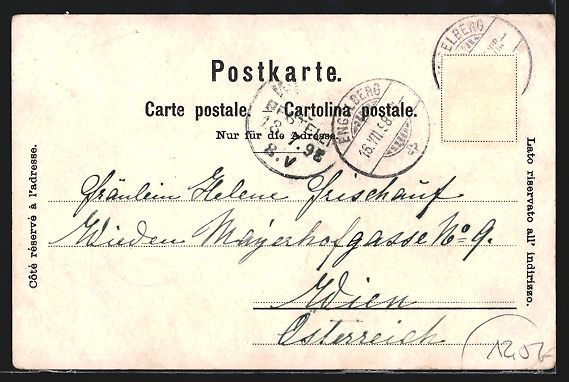 Postkarte.
Carte postale. Cartolina postale.
Nur für die Adresse.
Côté réservé à l'adresse.
Lato riservato all' indirizzo.
ELBERG
ENGELBERG
16.VII.98
BESTELLT
18.7.98
8.V
Fräulein Helene Frischauf
Wieden Mayerhofgasse No 9.
Wien
Österreich